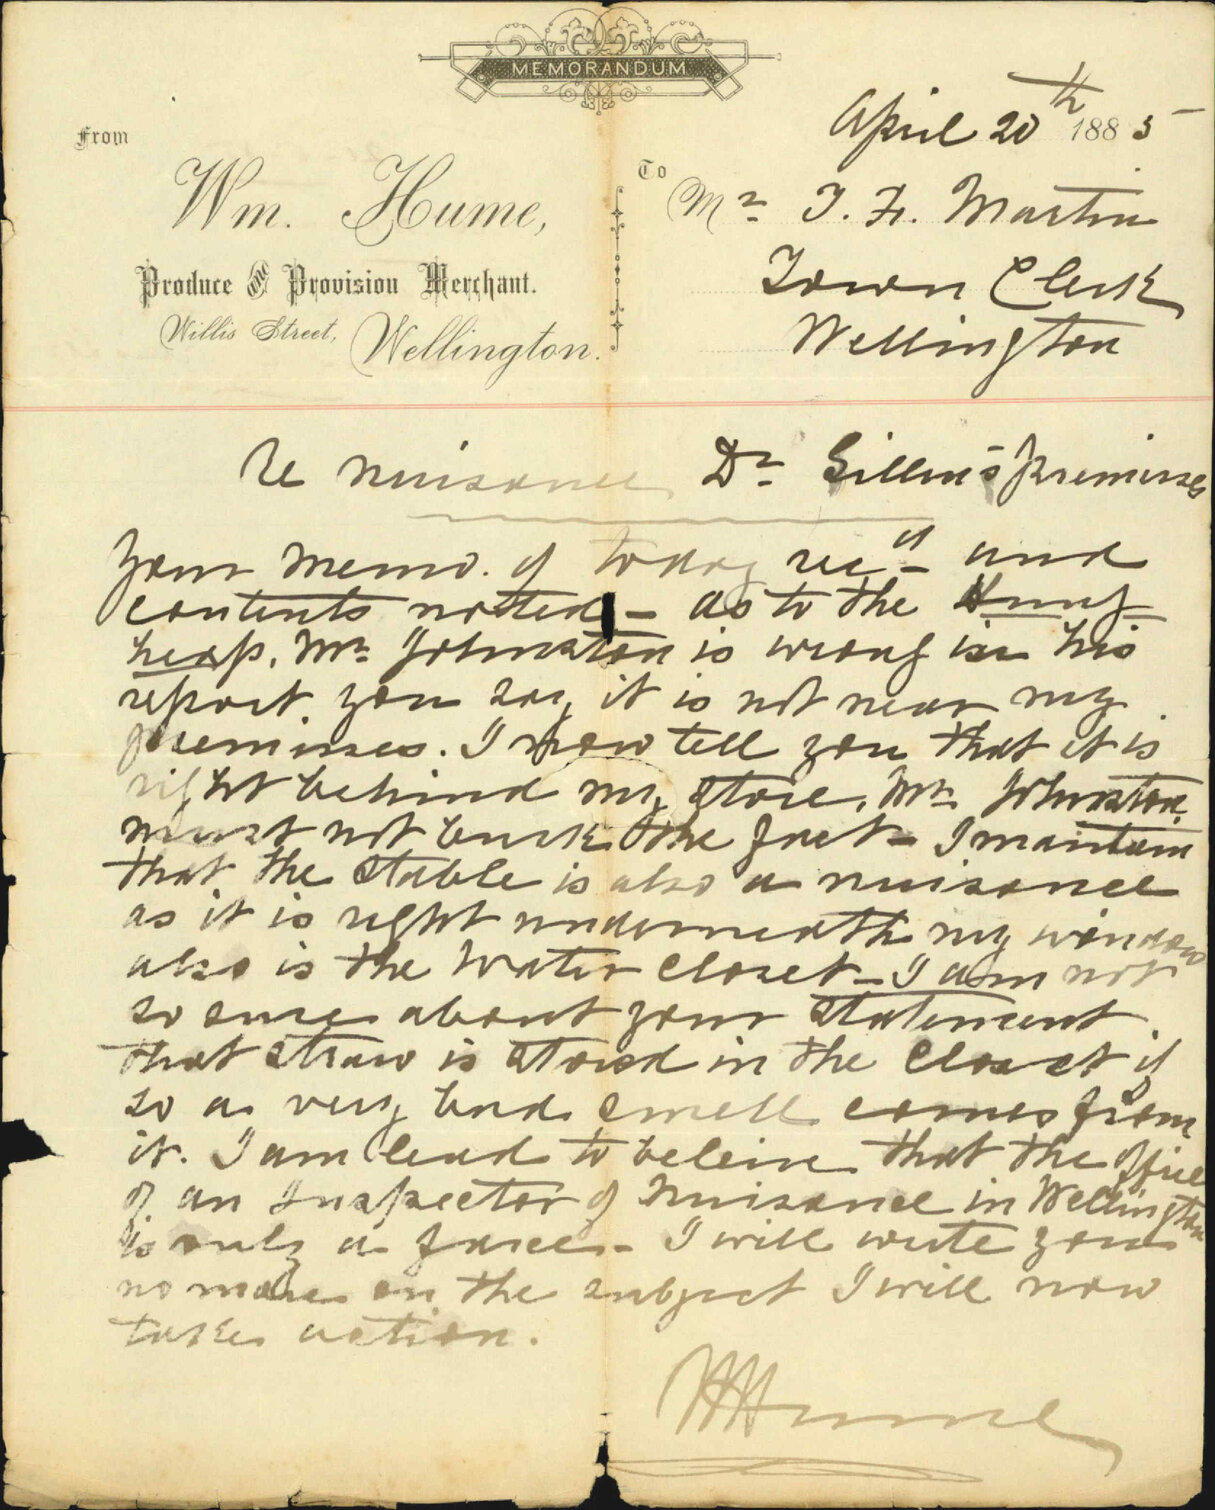 MEMORANDUM
April 20th 1885
From
To
Wm. Hume,
Mr T. F. Martin
Produce and Provision Merchant.
Town Clerk
Willis Street, Wellington.
Wellington
Re nuisance Dr Gillin's premisses
Your memo. of today recd and
contents noted - as to the Dung
heap, Mr Johnston is wrong in his
report. you say it is not near my
premisses. I now tell you that it is
right behind my store, Mr Johnston
must not burk the fact - I maintain
that the stable is also a nuisance
as it is right underneath my window
also is the Water Closet - I am not
so sure about your statement.
that straw is stored in the Closet if
so a very bad smell comes from
it. I am lead to beleive that the office
of an Inspector of Nuisance in Wellington
is only a farce - I will write you
no more on the subject I will now
take action.
WHume